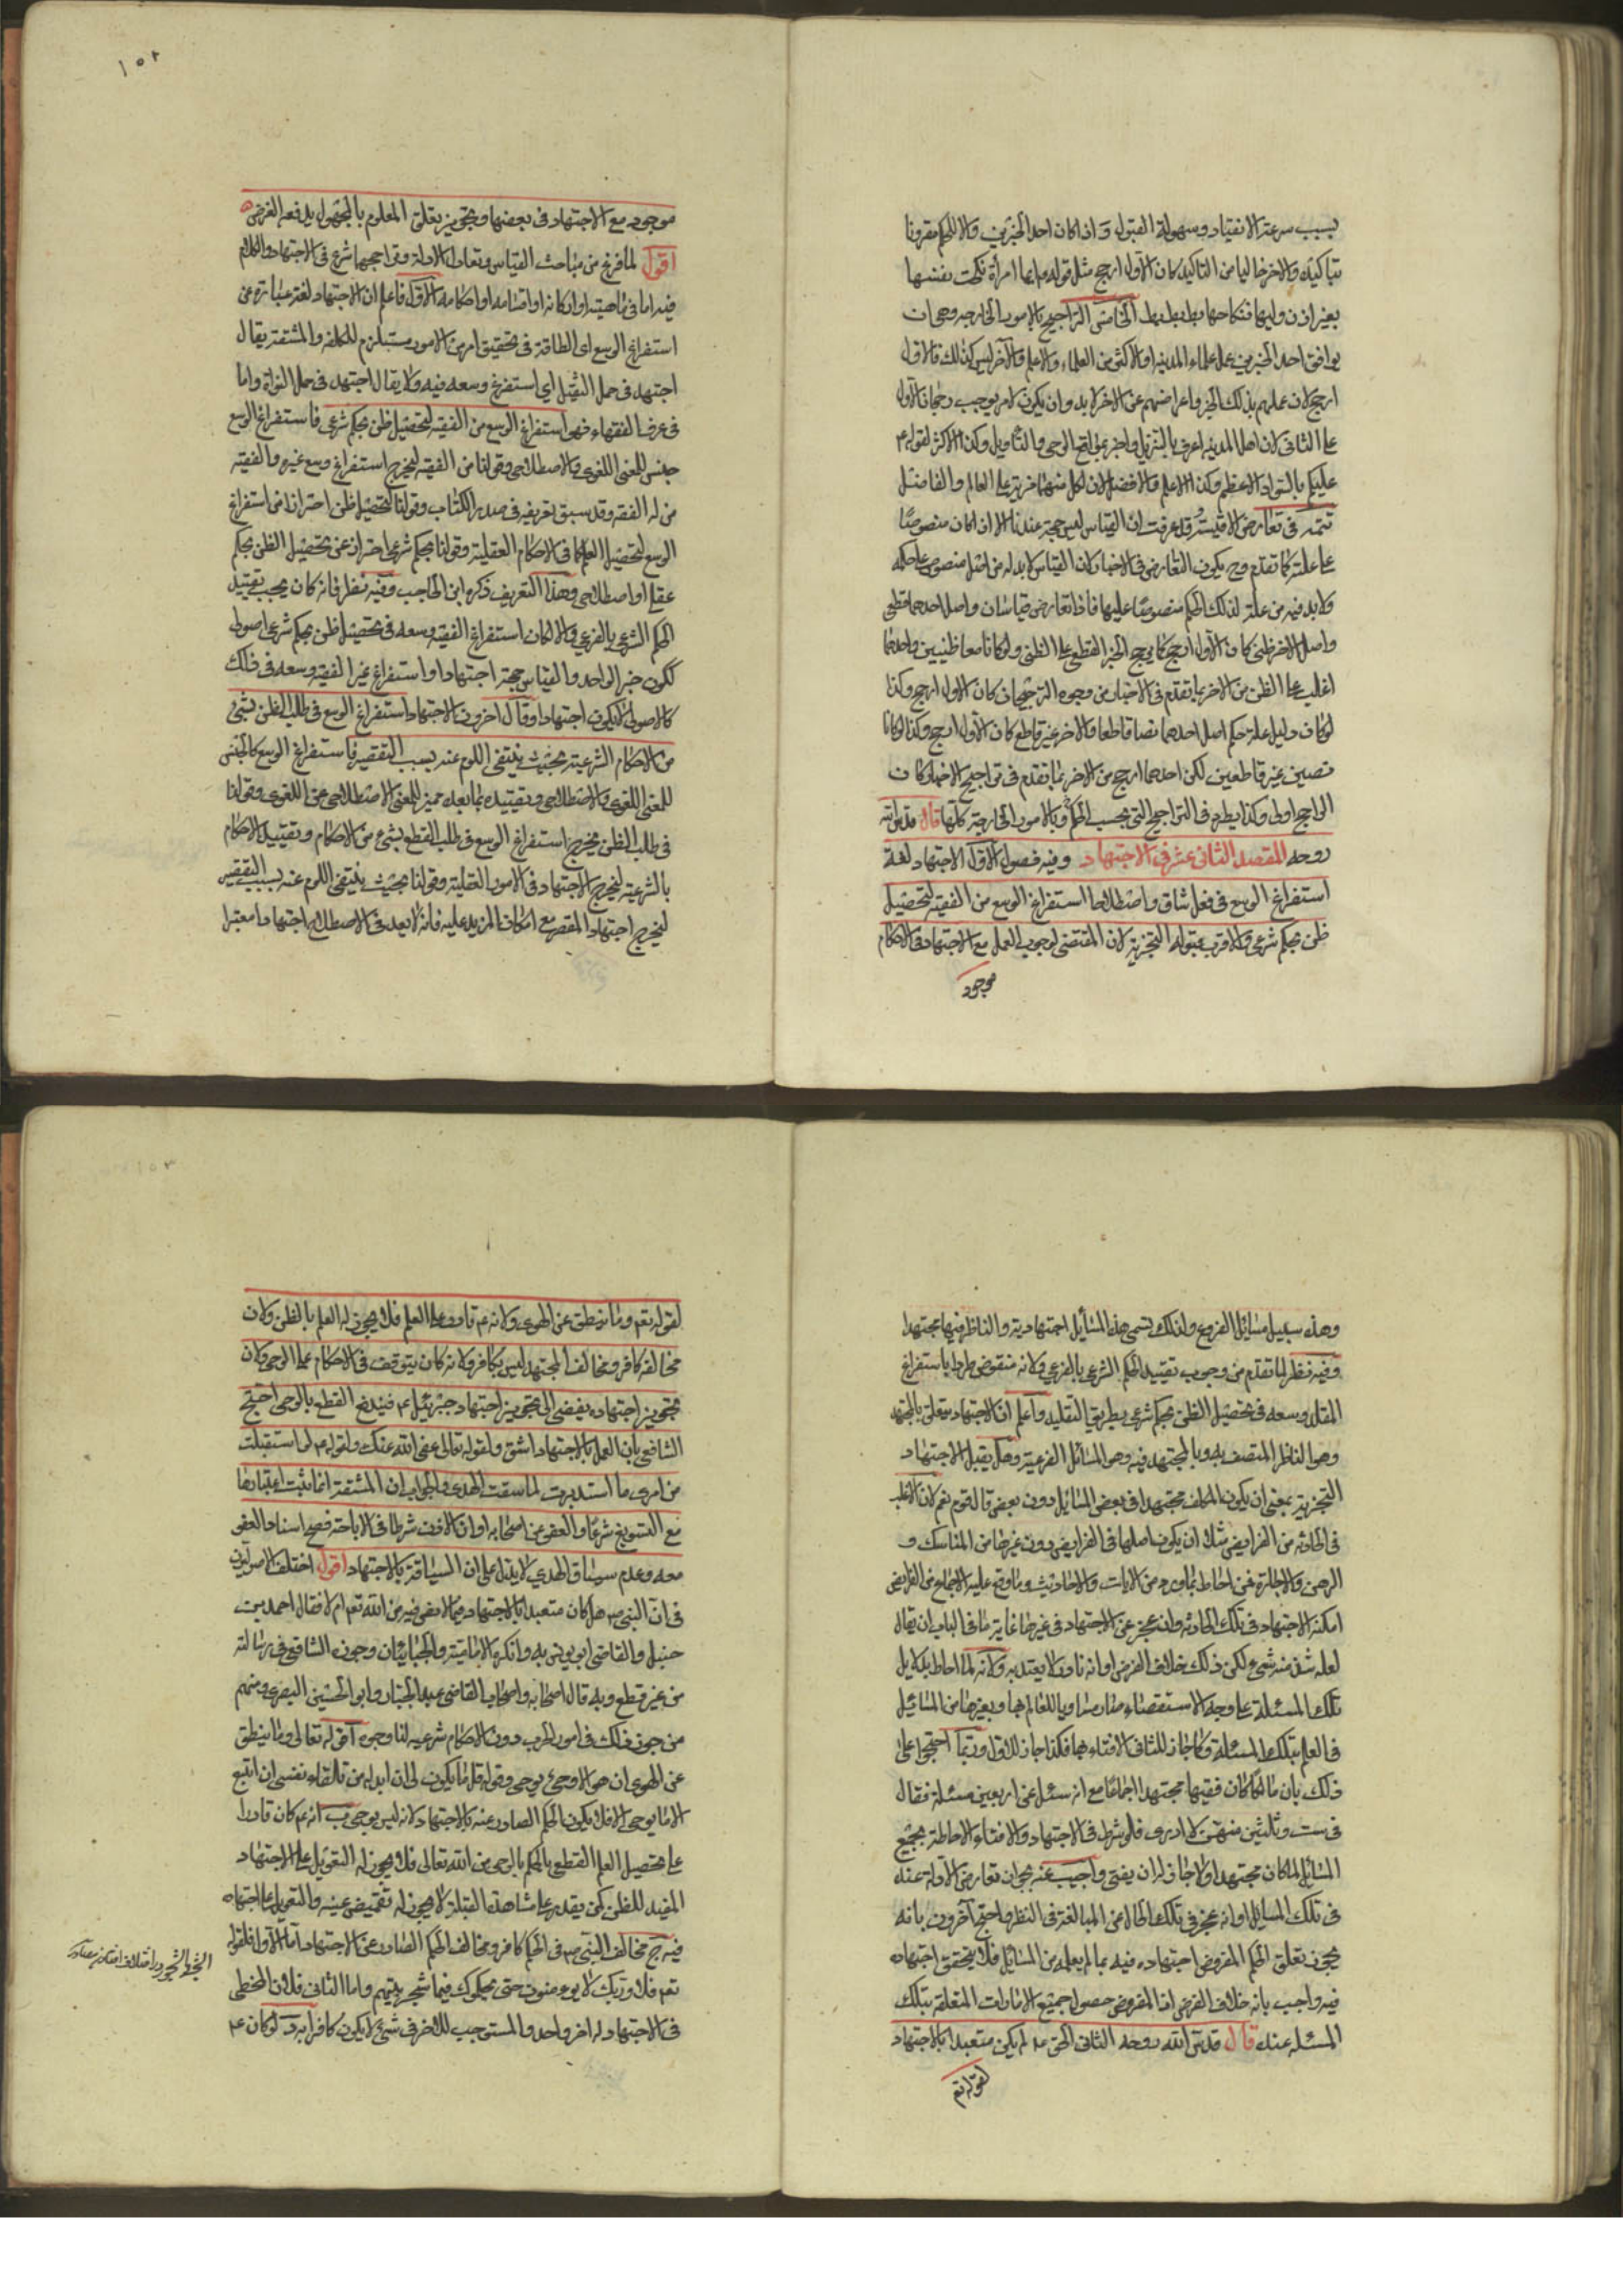 ١٥٢
بسبب سرعة الانقياد وسهولة القبول وَ اذا كان احد الخبرين والا للحكم مقرونا
بتاكيد والاخر خاليا من التاكيد كان الاول ارجح مثل قوله ع ايما امرأة نكحت نفسها
بغير اذن وليها فنكاحها بط بط بط الخامس التراجيح بالامور الخارجه وهي ان
يوافق احد الخبرين عمل علماء المدينه او الاكثر من العلماء والاعلم والآخر ليس كذلك فالاول
ارجح لان عملهم بذلك الخبر واعراضهم عن الاخر لا بد وان يكون لامر يوجب رجحان الاول
على الثاني لان اهل المدينه اعرف بالتنزيل واخبر بمواقع الوحي والتأويل وكذا الاكثر لقوله ع
عليكم بالسواد الاعظم وكذا الاعلم والافضل لان لكل منهما مزية على العالم والفاضل
تتمه في تعارض الاقيسة قد عرفت ان القياس ليس حجة عندنا الا اذا كان منصوصًا
على علته كما تقدم وح يكون التعارض في الاخبار لان القياس لا بد له من اصل منصوص على حكمه
ولا بد فيه من علة لذلك الحكم منصوصًا عليها فاذا تعارض قياسان واصل احدهما قطعي
واصل الاخر ظني كان الاول ارجح كما يرجح الخبر القطعي على الظني ولو كانا معا ظنيين واحدهما
اغلب على الظن من الاخر بما تقدم في الاخبار من وجوه الترجيحات كان الاول ارجح وكذا
لو كان دليل علة حكم اصل احدهما نصا قاطعا والاخر غير قاطع كان الاول ارجح وكذا لو كانا
نصين غير قاطعين لكن احدهما ارجح من الاخر بما تقدم في تراجيح الاخبار كان
الراجح اولى وكذا يطرد في التراجيح التي بحسب الحكم وبالامور الخارجة كلها قال قدس الله
روحه المقصد الثاني عشر في الاجتهاد وفيه فصول الاول الاجتهاد لغة
استفراغ الوسع في فعل شاق واصطلاحا استفراغ الوسع من الفقيه لتحصيل
ظن بحكم شرعي والاقرب قبوله التجزية لان المقتضي لوجوب العمل مع الاجتهاد في الاحكام
موجود
موجود مع الاجتهاد في بعضها وتجويز تعلق المعلوم بالمجهول يدفعه الفرض
اقول لما فرغ من مباحث القياس وتعادل الادلة وتراجيحها شرع في الاجتهاد والكلام
فيه اما في ماهيته او اركانه او اقسامه او احكامه الاول فاعلم ان الاجتهاد لغة عبارة عن
استفراغ الوسع اي الطاقة في تحقيق امر من الامور مستلزم للكلفة والمشقة يقال
اجتهد في حمل الثقيل اي استفرغ وسعه فيه ولا يقال اجتهد في حمل النواة واما
في عرف الفقهاء فهو استفراغ الوسع من الفقيه لتحصيل ظن بحكم شرعي فاستفراغ الوسع
جنس للمعنى اللغوي والاصطلاحي وقولنا من الفقيه ليخرج استفراغ وسع غيره والفقيه
من له الفقه وقد سبق تعريفه في صدر الكتاب وقولنا لتحصيل ظن احترازا من استفراغ
الوسع لتحصيل العلم كما في الاحكام العقلية وقولنا بحكم شرعي احتراز عن تحصيل الظن بحكم
عقلي او اصطلاحي وهذا التعريف ذكره ابن الحاجب وفيه نظر فانه كان يجب تقييد
الحكم الشرعي بالفرعي والا لكان استفراغ الفقيه وسعه في تحصيل ظن بحكم شرعي اصولي
ككون خبر الواحد والقياس حجة اجتهادا او استفراغ غير الفقيه وسعه في ذلك
كالاصولي لا يكون اجتهادا وقال اخرون الاجتهاد استفراغ الوسع في طلب الظن بشيء
من الاحكام الشرعية بحيث ينتفي اللوم عنه بسبب التقصير فاستفراغ الوسع كالجنس
للمعنى اللغوي والاصطلاحي وتقييده بما بعده مميز للمعنى الاصطلاحي عن اللغوي وقولنا
في طلب الظن يخرج استفراغ الوسع في طلب القطع بشيء من الاحكام وتقييد الاحكام
بالشرعية ليخرج الاجتهاد في الامور العقلية وقولنا بحيث ينتفي اللوم عنه بسبب التقصير
ليخرج اجتهاد المقصر مع امكان المزيد عليه فانه لا يعد في الاصطلاح اجتهادا معتبرا
١٥٣
وهذه سبيل مسائل الفروع ولذلك تسمى هذه المسائل اجتهادية والناظر فيها مجتهدا
وفيه نظر لما تقدم من وجوب تقييد الحكم الشرعي بالفرعي ولانه منقوض طردا باستفراغ
المقلد وسعه في تحصيل الظن بحكم شرعي بطريق التقليد واعلم ان الاجتهاد متعلق بالمجتهد
وهو الناظر المتصف به وبالمجتهد فيه وهو المسائل الفرعية وهل يقبل الاجتهاد
التجزية بمعنى ان يكون المكلف مجتهدا في بعض المسائل دون بعض قال قوم نعم لان الاغلب
في الحادثه من الفرايض مثلا ان يكون اصلها في الفرايض دون غيرها من المناسك و
الرهن والاجارة فمن احاط بما ورد من الايات والاحاديث وما وقع عليه الاجماع من الفرايض
امكنه الاجتهاد في تلك الحادثه وان عجز عن الاجتهاد في غيرها غاية ما في الباب ان يقال
لعله شذ منه شيء لكن ذلك خلاف الفرض او انه نادر لا يعتد به ولانه لما احاط بدلايل
تلك المسئلة على وجه الاستقصاء صار مساويا للعالم بها وبغيرها من المسائيل
في العلم بتلك المسئلة وكما جاز للثاني الافتاء بها فكذا جاز للاول وربما احتجوا على
ذلك بان مالكا كان فقيها مجتهدا اجماعا مع انه سئل عن اربعين مسئلة فقال
في ست وثلثين منهن لا ادري فلو شرط في الاجتهاد والافتاء الاحاطة بجميع
المسائل لما كان مجتهدا ولا جاز له ان يفتي واجيب عنه بجواز تعارض الادلة عنده
في تلك المسايل او انه عجز في تلك الحالة عن المبالغة في النظر واحتج آخرون بانه
يجوز تعلق الحكم المفروض اجتهاده فيه بما لم يعلمه من المسائل فلا يتحقق اجتهاده
فيه واجيب بانه خلاف الفرض اذ المفروض حصول جميع الامارات المتعلقه بتلك
المسئله عنده قال قدس الله روحه الثاني الحق انه لم يكن متعبدا بالاجتهاد
لقوله تع
لقوله تع وما ينطق عن الهوى ولانه ع قادر على العلم فلا يجوز له العمل بالظن ولان
مخالفه كافر ومخالف المجتهد ليس بكافر ولانه كان يتوقف في الاحكام على الوحي ولان
تجويز اجتهاده يفضي الى تجويز اجتهاد جبرئيل ع فيندفع القطع بالوحي احتج
الشافعي بان العمل بالاجتهاد اشق ولقوله تعالى عفى الله عنك ولقوله ع لو استقبلت
من امري ما استدبرت لما سقت الهدي والجواب ان المشقة انما يثبت اعتبارها
مع التسويغ شرعًا والعفو عن اصحابه او ان الاذن شرط في الاباحة فصح اسناد العفو
معه وعدم سياق الهدي لا يدل على ان السياقة بالاجتهاد اقول اختلف الاصوليون
في ان النبي ص هل كان متعبدا بالاجتهاد فيما لا نص فيه من الله تع ام لا فقال احمد بن
حنبل والقاضي ابو يوسف به وانكره الامامية والجبائيان وجوزه الشافعي في رسالته
من غير قطع وبه قال اصحابه واصحاب القاضي عبد الجبار وابو الحسين البصري ومنهم
من جوز ذلك في امور الحرب دون الاحكام شرعيه لنا وجوه آ قوله تعالى وما ينطق
عن الهوى ان هو الا وحي يوحى وقوله قل ما يكون لي ان ابدله من تلقاء نفسي ان اتبع
الا ما يوحى الي فلا يكون الحكم الصادر عنه بالاجتهاد لانه ليس بوحي ب انه ع كان قادرا
على تحصيل العلم القطعي بالحكم بالوحي من الله تعالى فلا يجوز له التعويل على الاجتهاد
المفيد للظن كمن يقدر على مشاهدة القبلة لا يجوز له تغميض عينه والتعويل على اجتهاده
فيه ج مخالف النبي ص في الحكم كافر ومخالف الحكم الصادر عن الاجتهاد اما الاول فلقوله
تع فلا وربك لا يومنون حتى يحكموك فيما شجر بينهم واما الثاني فلان المخطي
في الاجتهاد له اجر واحد والمستوجب للاجر في شيء لا يكون كافرا به د لو كان ع